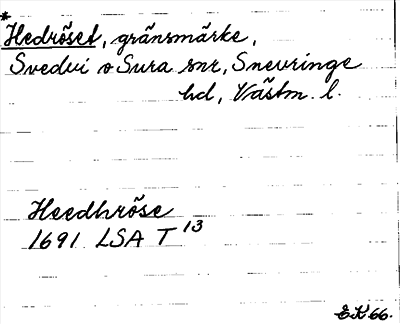 *
Hedröset, gränsmärke,
Svedvi o Sura snr, Snevringe
hd, Västm. l.
Heedhröse
1691 LSA T 13
E K 66.